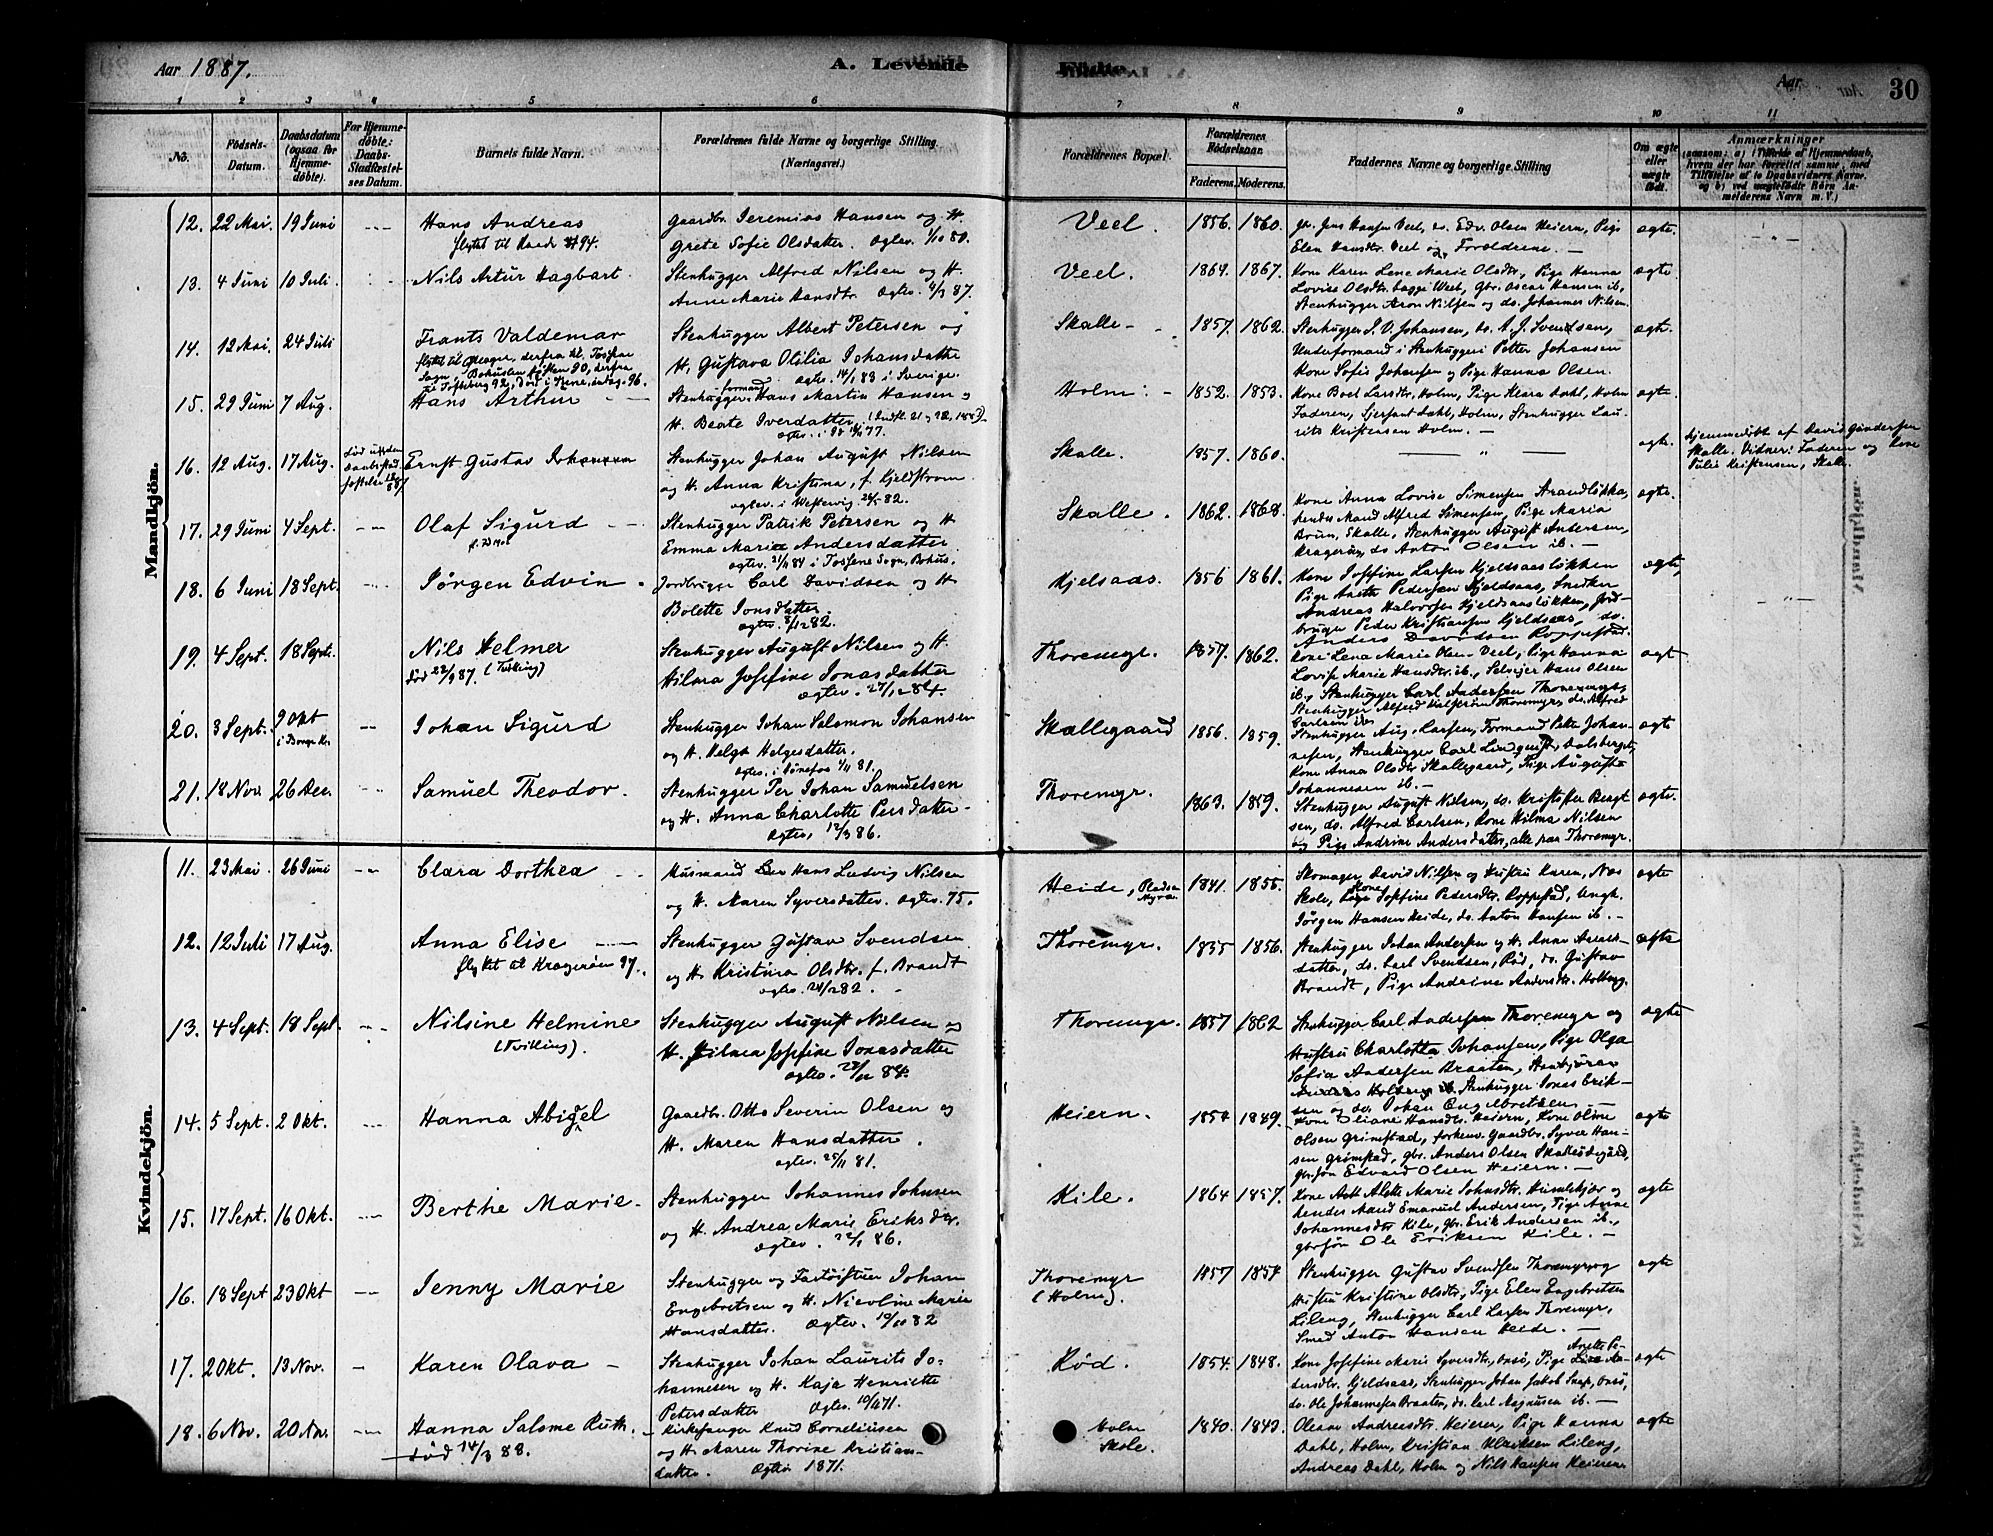 Aar 1887.
A. Levende
Fødte.
Aar
30
1 2 3 4 5 6 7 8 9 10 11
No.
Fødsels-Datum.
Daabsdatum (ogsaa for Hjemmedöbte).
For Hjemmedöbte: Daabs-Stadfæstelses Datum.
Barnets fulde Navn.
Forældrenes fulde Navne og borgerlige Stilling.
(Næringsvei.)
Forældrenes Bopæl.
Forældrenes Födselsaar.
Faderens. Moderens.
Faddernes Navne og borgerlige Stilling
Om ægte eller uægte födt.
Anmærkninger
(saasom: a) Tilfælde af Hjemmedaab, hvem der har forrettet samme, med Tilföielse af to Daabsvidners Navne, og b) ved uægtefödte Börn Anmelderens Navn m. V.)
Mandkjön.
12. 22 Mai. 19 Juni
Hans Andreas
flyttet til
94.
Gaardbr. Jeremias Hansen og H.
Grete Sofie Olsdatter. Ægtev. 1/10 80.
Veel. 1856. 1860.
Gr. Jens Hansen Veel, do. Edv. Olsen Heiern, Pige
Elen Hansdtr. Veel og Forældrene. —
ægte.
13. 4 Juni 10 Juli.
Nils Artur Hagbart.
Stenhugger Alfred Nilsen og H.
Anne Marie Hansdtr. Ægtev. 87.
Veel. 1864. 1867.
Kone Karen Lene Marie Olsdtr., Pige Hanna
Lovise Olsdtr. begge Veel, Gbr. Oscar Hansen ib,
Stenhugger Aron Nilsen og do. Johannes Nilsen.
ægte.
14. 12 Mai. 24 Juli
Frants Valdemar
Stenhugger Albert Petersen og
H. Gustava Otilia Johansdatter
Ægtev. 14/1 83 i Sverige.
Skalle - 1857. 1862.
Stenhugger J. V. Johansen, do. A. J. Svendsen,
Underformand i Stenhuggeri Petter Johansen
Kone Sofie Johansen og Pige Hanna Olsen.
ægte.
15. 29 Juni 7 Aug.
Hans Arthur
Stenhuggerformand Hans Martin Hansen og
H. Beate Iverdatter
Holm. 1852. 1853.
Kone Boel Larsdtr. Holm, Pige Klara Dahl, Holm
Faderen, Sjersant Dahl, Holm, Stenhugger Lau-
rits Kristensen Holm. —
ægte.
16. 12 Aug. 17 Aug.
Ernst Gustav Johansen
Stenhugger Johan August Nilsen
og H. Anna Kristina, f. Kjeldstrom
Ægtev. i Westervig 26/12 82.
Skalle. 1857. 1860.
— " —
ægte.
Hjemmedöbt af David Gundersen
Skalle. Vidner: Faderen og Kone
Julie Kristensen, Skalle.
17. 29 Juni 4 Sept.
Olaf Sigurd
Stenhugger Patrik Petersen og H
Emma Maria Andersdatter
Ægtev. 21/11 84 i Tossene Sogn, Bohus.
Skalle. 1862. 1868.
Kone Anna Lovise Simensen Strandløkka,
hendes Mand Alfred Simensen, Pige Maria
Brun, Skalle, Stenhugger August Andersen,
Kragerøn, do Anton Olsen ib. —
ægte.
18. 6 Juni 18 Sept.
Jørgen Edvin
Jordbruger Carl Davidsen og H
Bolette Jonsdatter.
Ægtev. 82.
Kjelsaas. 1856 1861.
Kone Josefine Larsen Kjeldsaasløkken
Pige Anette Pedersen Kjeldsaas, Snedker
Andreas Halvorsen Kjeldsaasløkken, Jord-
bruger Peder Kristiansen Kjeldsaas, do.
Anders Davidsen Roppestad.
ægte,
19. 4 Sept. 18 Sept.
Nils Helmer
død 22/9 87. (Tvilling)
Stenhugger August Nilsen og H.
Hilma Josefine Jonasdatter
Ægtev. 27/12 84.
Thoremyr. 1857. 1862.
Kone Lena Marie Olsen Veel, Pige Hanna
Lovise Marie Hansdtr. ib., Selveier Hans Olsen
ib., Stenhugger Carl Andersen Thoremyr,
Stenhugger Alfred Thoremyr, do. Alfred
Carlsen
ægte
20. 3 Sept. 9 Okt
i Borge K.
Johan Sigurd
Stenhugger Johan Salomon Johansen
og H. Helga Helgesdatter.
Ægtev. i 81.
Skallegaard 1856. 1859.
Stenhugger Aug. Larsen, Formand Petter Johan-
nesen, Stenhugger Carl Lindquist, Dalsberget,
Kone Anna Olsdtr Skallegaard, Pige Augusta
Johannesen ib. —
ægte
21. 18 Nov. 26 Dec.
Samuel Theodor.
Stenhugger Per Johan Samuelsen
og H. Anna Charlotte Persdatter
Ægtev. 12/3 86.
Thoremyr. 1863. 1859.
Stenhugger August Nilsen, do. Kristoffer Bengt
sen, do. Alfred Carlsen, Kone Hilma Nilsen
og Pige Andrine Andersdatter, alle paa Thoremyr.
ægte.
Kvindekjön.
11. 23 Mai 26 Juni
Clara Dorthea
Husmand Hans Ludvig Nilsen
og H. Maren Syversdatter. Ægtev. 75.
Heide, Pladsen Myra. 1841. 1855.
Skomager David Nilsen og Hustru Karen, Næs
Skole, Kone Josefine Pedersdtr. Roppestad, Ungk.
Jörgen Hansen Heide, do. Anton Hansen ib. —
ægte
12. 12 Juli 17 Aug.
Anna Elise
flyttet til Kragerøen 97.
Stenhugger Gustav Svendsen
og H. Kristina Olsdtr. f. Brandt
Ægtev. 24/12 82.
Thoremyr. 1855 1856.
Stenhugger Johan Andersen og H. Anna
datter, do. Carl Svendsen, Röd, do. Gustav
Brandt, Pige Andrine Andersdtr. Holberg.
ægte
13. 4 Sept. 18 Sept.
Nilsine Helmine
(Tvilling).
Stenhugger August Nilsen og
H. Hilma Josefine Jonasdatter
Ægtev. 84.
Thoremyr. 1857 1862
Stenhugger Carl Andersen Thoremyr og
Hustru Charlotta Johansen, Pige Olga
Sofia Andersen Braaten,
Holberg Stenhugger Jonas Erik-
sen og do. Johan Engelbretsen —
ægte
14. 5 Sept. 2 Okt.
Hanna Abigel
Gaardbr. Otto Severin Olsen og
H. Maren Hansdatter.
Ægtev. 25/11 81.
Heiern. 1854 1849.
Kone Oliane Hansdtr. Heiern, Kone Oline
Olsen Grimstad, forhenv. Gaardbr. Syver Han-
sen Grimstad, gbr. Anders Olsen Skalleödegaard,
gbrsön Edvard Olsen Heiern. —
ægte
15. 17 Sept. 16 Okt.
Berthe Marie
Stenhugger Johannes Johnsen
og H. Andrea Marie Eriksdtr.
Ægtev. 22/1 86.
Kile. 1864 1857.
Kone Alette Marie Johnsdtr. Humlekjær og
hendes Mand Emanuel Andersen, Pige Anne
Johannesdtr Kile, gbr. Erik Andersen ib.,
gbrsön Ole Eriksen Kile. —
ægte
16. 18 Sept 23 Okt
Jenny Marie
Stenhugger og Johan
Engebretsen og H. Nicoline Marie
Hansdatter. Ægtev. 19/10 82
Thoremyr
(Holm). 1857 1854
Stenhugger Gustav Svendsen Thoremyr og
Hustru Kristine Olsdtr, Pige Elen Engebretsen
Lileng, Stenhugger Carl Larsen Thoremyr,
Smed Anton Hansen Heide. —
ægte
17. 2 Okt. 13 Nov.
Karen Olava
Stenhugger Johan Laurits Jo-
hannesen og H. Kaja Henriette
Petersdatter Ægtev. 71.
Röd. 1854. 1848.
Kone Josefine Marie Syversdtr. Onsö, Pige Anette Pe-
dersdtr. Kjeldsaas, Stenhugger Johan Jakob Onsö,
do. Ole Johannesen Braaten, do. Carl Magnusen ib —
ægte
18. 6 Nov. 20 Nov.
Hanna Salome Ruth.
död 14/3 88.
Kirkesanger Knud Corneliusen
og H. Maren Thorine Kristians-
datter. Ægtev 1871.
Holm
Skole. 1840. 1843.
Oleane Andreasdtr. Heieren, Pige Hanna
Dahl, Holm, Kristian Ulriksen Lileng,
Andreas Dahl, Holm og Nils Hansen Heieren
ægte